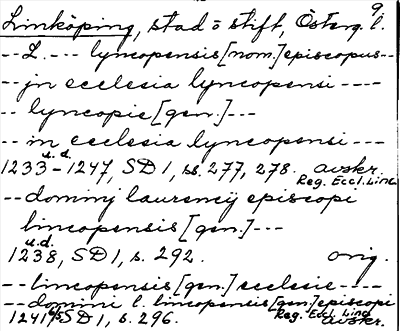 9.
Linköping, stad o stift, Österg. l.
-- L. --- lyncopensis [nom.] episcopus --
-- jn ecclesia lyncopensi ----
-- lyncopie [gen.] ---
-- in ecclesia lyncopensi ---
u. d.
1233 - 1247, SD 1, ss. 277, 278. avskr.
Reg. Eccl. Linc.
-- dominj laurencij episcopi
lincopensis [gen.] ---
u.d.
1238, SD 1, s. 292. orig.
-- lincopensis [gen.] ecclesie ----
-- domini l. lincopensis [gen.] episcopi
1241 SD 1, s. 296. Reg. Eccl. Linc.
avskr.